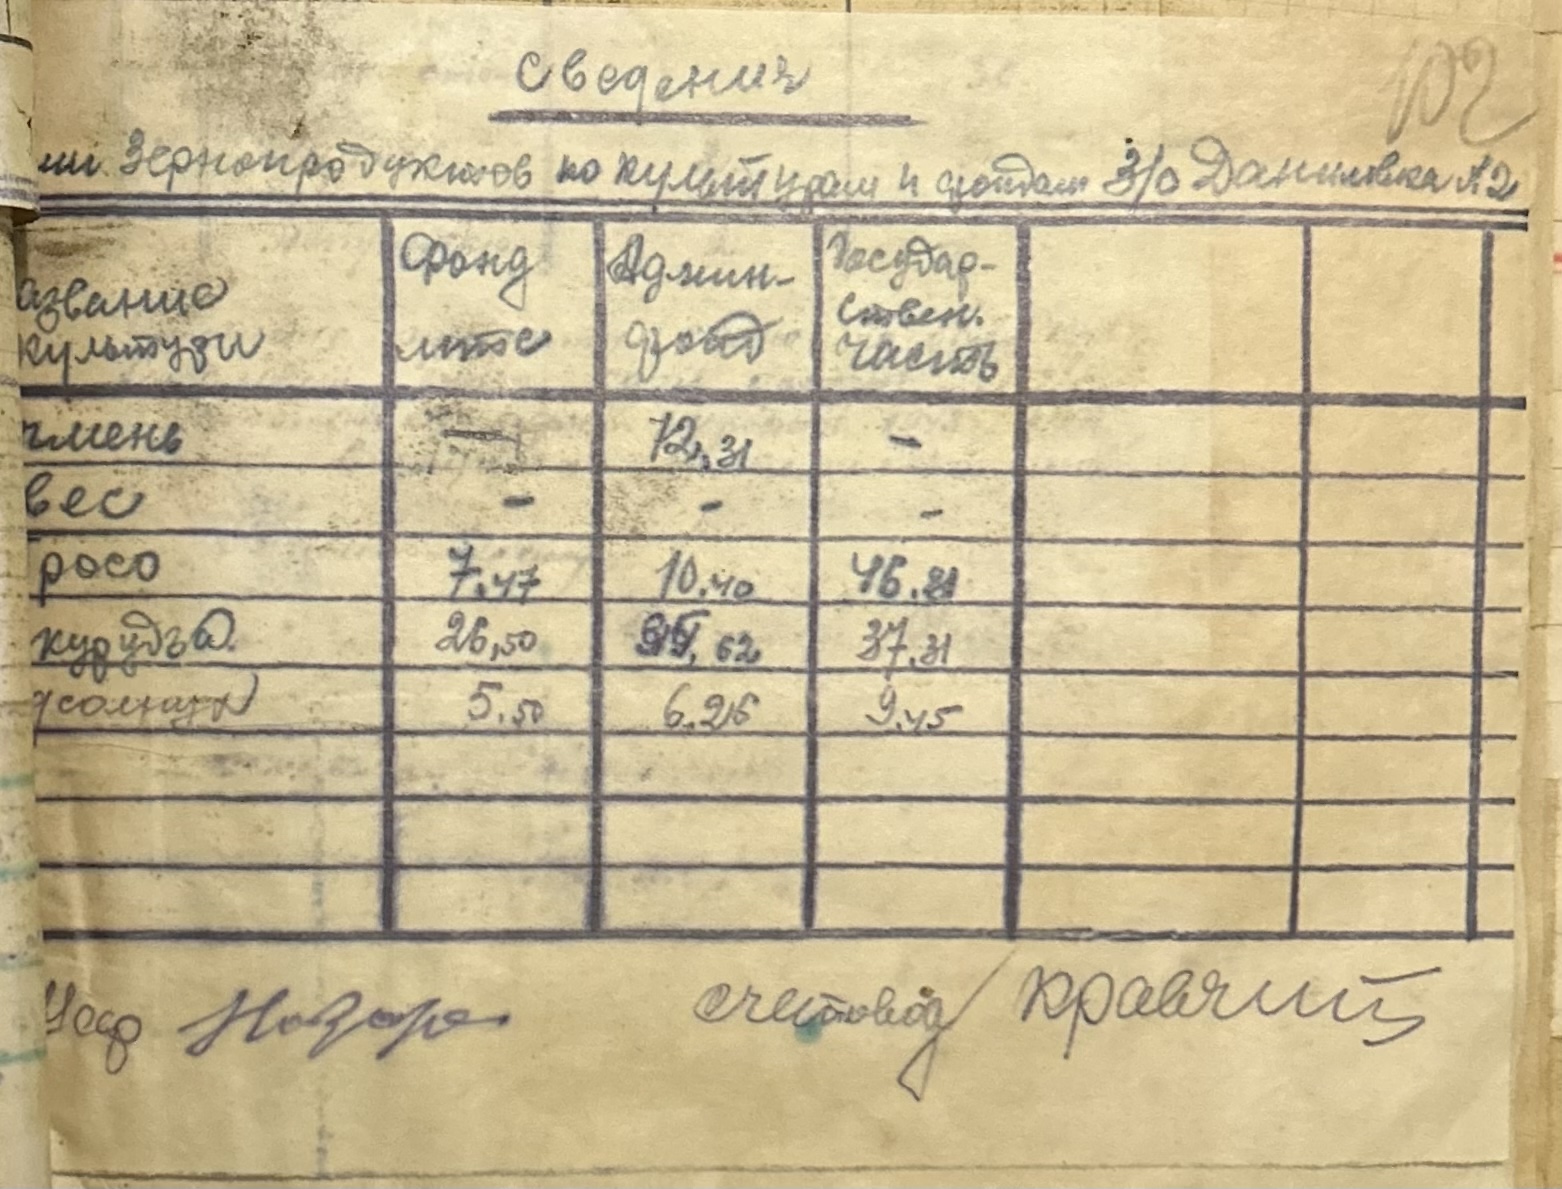 102
Сведения
ии Зернопродуктов по культурам и фондам З/о Даниловка №2
азвание культуры Фонд мтс Админ- фонд Государ- ствен. часть
чмень — 12,31 -
вес - - -
росо 7.47 10.40 46.31
курудза 26,50 62 37.31
дсолнух 5.50 6.26 9.45
счетовод Кравчий